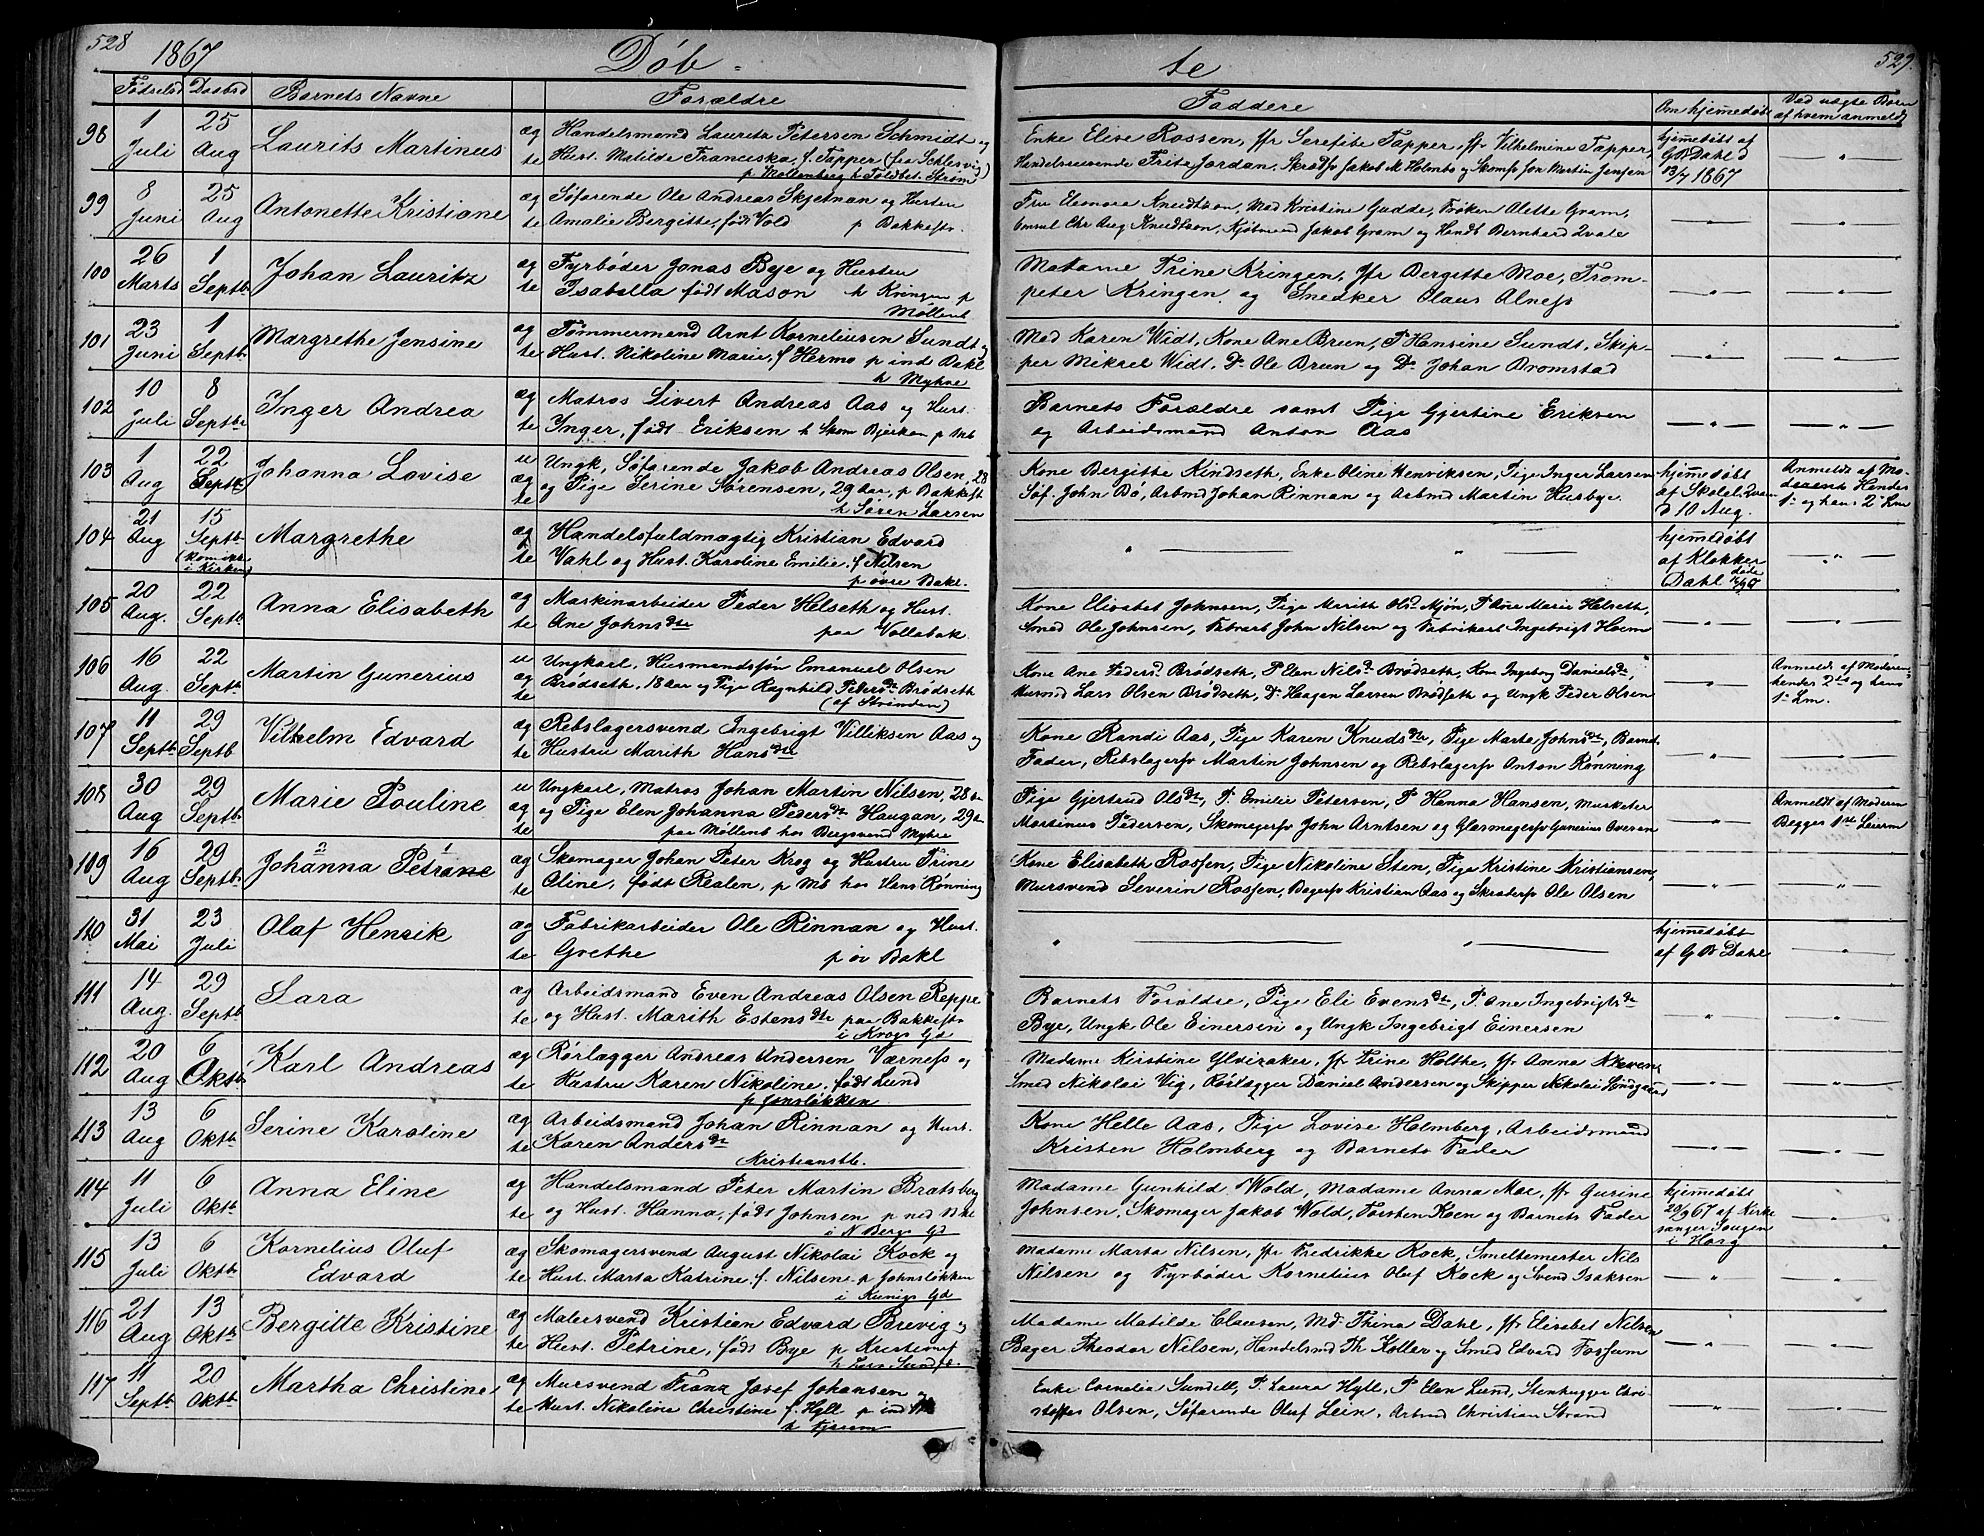 528
1867 Döb-
te 529.
Fødselsd Daabsd Barnets Navne Forældre
Faddere Om hjemedøbt Ved uægte Børn af hvem anmeldt
98 1 Juli 25 Aug Laurits Martinus æg te Handelsmand Lauritz Petersen Schmidt og
Hust. Matilde Franciska, f. Tapper (fra Schlesvig)
p Møllenberg h Toldbet. Strøm
Enke Elise Rossen, jfr Serefite Tapper jfr Vilhelmine Tapper,
Handelsreisende Fritz Jordan, Skrædsv Jakob M Holmbo og Skomsv Jon Martin Jensen
hjemedøbt af G B Dahl d 13/7 1867 "
99 8 Juni 25 Aug Antonette Kristiane æg te Søfarende Ole Andreas Skjetnan og Hustru
Amalie Bergitte, født Vold p Bakkestr.
Fru Eleonora Knudtzon, Mad Kristine Gudde, Frøken Alette Gram,
Consul Chr Aug Knudtzon, Kjøbmand Jakob Gram og Handb Bernhard Qvale
" "
100 26 Marts 1 Septb Johan Lauritz æg te Fyrbøder Jonas Bye og Hustru
Isabella født Mason h Kringen p
Møllenb
Madame Trine Kringen, jfr Bergitte Moe, Trom-
peter Kringen og Snedker Olaus Alness
" "
101 23 Juni 1 Septb. Margrethe Jensine æg te Tømmermand Arnt Korneliusen Sundt og
Hust. Nikoline Marie, f Hermo p ind Bakl
h Myhre
Mad Karen Widt, Kone Ane Brun, P Hansine Sundt, Skip-
per Mikael Widt, Do Ole Brun og Do Johan Bromstad
" "
102 10 Juli 8 Septbr Inger Andrea æg te Matros Sivert Andreas Aas og Hust.
Inger, født Eriksen h Skom Bjerken p Mb
Barnets Forældre samt Pige Gjertine Eriksen
og Arbeidsmand Anton Aas
" "
103 1 Aug 22 Septb Johanna Lovise u æg te Ungk, Søfarende Jakob Andreas Olsen, 28
og Pige Serine Sørensen, 29 Aar, p Bakkest
h Søren Larsen
Kone Bergitte Kindseth, Enke Oline Henriksen, Pige Inger Larsen
Søf. John Bö, Arbmd Johan Rinnan og Arbmd Martin Husbye.
hjemedøbt af Skolel. d 10 Aug. Anmeldt af Moderen Hendes 1ste og hans 2det Lm
104 21 Aug 15 Septb (kom ikke i Kirken) Margrethe æg te Handelsfuldmægtig Kristian Edvard
Vahl og Hust. Karoline Emilie, f Nilsen
p øvre Bakl.
" "
hjemedøbt af Klokker Dahl "
105 20 Aug. 22 Septb Anna Elisabeth æg te Maskinarbeider Peder Helseth og Hust.
Ane Johnsdtr paa Vollabak
Kone Elisabet Johnsen, Pige Marith Olsd Mjøn, P Ane Marie Helseth,
Smed Ole Johnsen, Fabrarb John Nilsen og Fabrikarb Ingebrigt Hoem
" "
106 16 Aug. 22 Septb. Martin Gunerius u æg te Ungkarl, Husmandssøn Emanuel Olsen
Brödseth, 18 Aar og Pige Ragnhild Pedersdr Brödseth
(af Strinden)
Kone Ane Pedersd Brödseth, P Elen Nilsdr Brödseth, Kone Ingeborg Danielsdr,
Husmd Lars Olsen Brödseth, Do Haagen Larsen Brödseth og Ungk Peder Olsen
" Anmeldt af Moderen, hendes 2det og hans 1ste Lm.
107 11 Septb. 29 Septb Vilhelm Edvard æg te Rebslagersvend Ingebrigt Villiksen Aas og
Hustru Marith Hansdtr
Kone Randi Aas, Pige Karen Knudsdtr, Pige Marta Johnsdr, Barnets
Fader, Rebslagersv Martin Johnsen og Rebslagersv Anton Rønning
" "
108 30 Aug 29 Septb Marie Pouline u æg te Ungkarl, Matros Johan Martin Nilsen, 28 Aar
og Pige Elen Johanna Pedersdr Haugan, 29 Aar
paa Møllenb hos Bergsvend Myhre
Pige Gjertrud Olsdr, P. Emilie Petersen, P Hanna Hansen, Musketer
Martinus Pedersen, Skomagersv John Arntsen og Glasmagersv Gunerius Overan
" Anmeldt af Moderen Begges 1ste Leierm
109 16 Aug 29 Septb. Johanna Petrine æg te Skomager Johan Peter Krog og Hustru Trine
Eline, født Realen, p Mb hos Hans Rønning
Kone Elisabeth Rossen, Pige Nikoline Sten, Pige Kristine Kristiansen,
Mursvend Severin Rossen, Bagersv Kristian Aas og Skrædersv Ole Olsen
" "
110 31 Mai 23 Juli Olaf Henrik æg te Fabrikarbeider Ole Rinnan og Hust.
Grethe p øv Bakl
" "
hjemedøbt af G B Dahl "
111 14 Aug. 29 Septb Sara æg te Arbeidsmand Even Andreas Olsen Reppe
og Hust. Marith Estensdtr paa Bakkestr
i Krogs Gd
Barnets Forældre, Pige Eli Evensdtr, P. Ane Ingebrigtsdr
Bye, Ungk Ole Einersen og Ungk Ingebrigt Einersen
" "
112 20 Aug 6 Oktb Karl Andreas æg te Rörlægger Andreas Andersen Værness og
Hustru Karen Nikoline, født Lund
p Jonsløkken
Madame Kirstine Ylvisaker, jfr Trine Holthe, jfr Anna
Smed Nikolai Vig, Rörlægger Daniel Andersen og Skipper Nikolai Lyngaad
" "
113 13 Aug 6 Oktb. Serine Karoline æg te Arbeidsmand Johan Rinnan og Hust.
Karen Andersdr
Kristianstb.
Kone Helle Aas, Pige Lovise Holmberg, Arbeidsmand
Kristen Holmberg og Barnets Fader
" "
114 11 Juli 6 Oktb. Anna Eline æg te Handelsmand Peter Martin Bratsberg
og Hust. Hanna, født Johnsen p ned Bakl
i N Bergs Gd
Madame Gunhild Wold, Madame Anna Moe, jfr Gurine
Johnsen, Skomager Jakob Wold, Torsten Koen og Barnets Fader
hjemedøbt 20/9 67 af Kirkesanger Sougen i Horg "
115 13 Juli 6 Oktb. Kornelius Oluf Edvard æg te Skomagersvend August Nikolai Kock og
Hust. Marta Katrine f. Nilsen p Johnsløkken
i Kunigs Gd
Madame Marta Nilsen, jfr Fredrikke Kock, Smeltemester Nils
Nilsen og Fyrbøder Kornelius Oluf Kock og Svend Isaksen
" "
116 21 Aug 13 Oktb Bergitte Kristine æg te Malersvend Kristian Edvard Brevig og
Hust. Petrine, født Bye p Kristiansf
h Lars Sundse.
Madame Matilde Clausen, Md. Thina Dahl, jfr Elisabet Nilsen
Bager Theodor Nilsen, Handelsmd Th Koller og Smed Edvard Fossum
" "
117 11 Septb 20 Oktb. Martha Christine æg te Mursvend Franz Josef Johansen og
Hust. Nikoline Christine f. Hyll p ind Bk
h Fjerem
Enke Cornelia Sundell, P. Laura Hyll, P Elen Lund, Stenhugger Chri-
stoffer Olsen, Søfarende Oluf Lein, Arbmd Christian Strand
" "